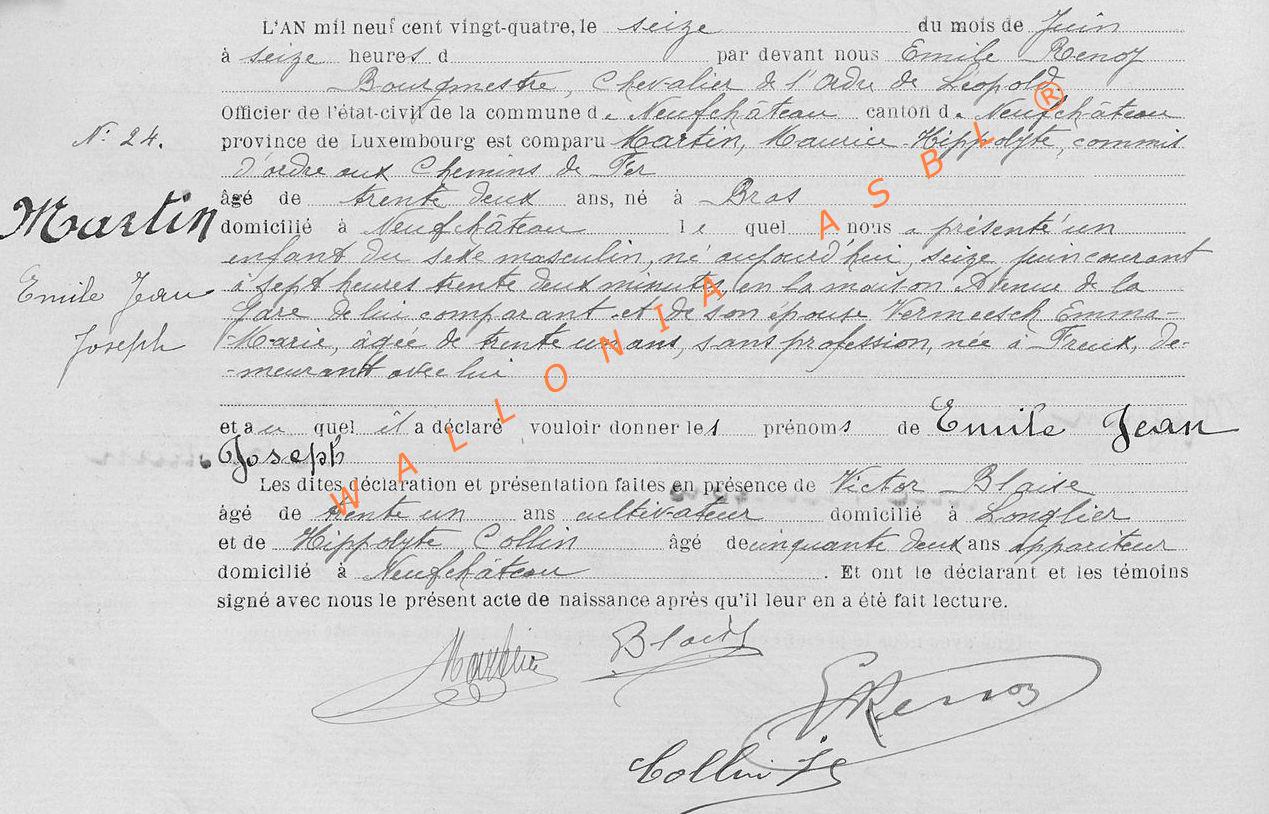 L'AN mil neuf cent vingt-quatre, le seize du mois de Juin
à seize heures d par devant nous Emile Renoy
Bourgmestre, Chevalier de l'Ordre de Léopold,
Officier de l'état-civil de la commune de Neufchâteau canton de Neufchâteau
N° 24.
province de Luxembourg est comparu Martin, Maurice-Hippolyte, commis
d'ordre aux Chemins de Fer
âgé de trente deux ans, né à Bras
Martin
domicilié à Neufchâteau le quel nous a présenté un
enfant du sexe masculin, né aujourd'hui, seize juin courant
Emile Jean
Joseph
à sept heures trente deux minutes, en la maison Avenue de la
Gare de lui comparant et de son épouse Vermeesch Emma-
-Marie, âgée de trente un ans, sans profession, née à Freux, de-
-meurant avec lui
et au quel il a déclaré vouloir donner les prénoms de Emile Jean
Joseph
Les dites déclaration et présentation faites en présence de Victor Blaise
âgé de trente un ans cultivateur domicilié à Longlier
et de Hippolyte Collin âgé de cinquante deux ans appariteur
domicilié à Neufchâteau . Et ont le déclarant et les témoins
signé avec nous le présent acte de naissance après qu'il leur en a été fait lecture.
Blaise
E Renoy
Collin
WALLONIA ASBL ®